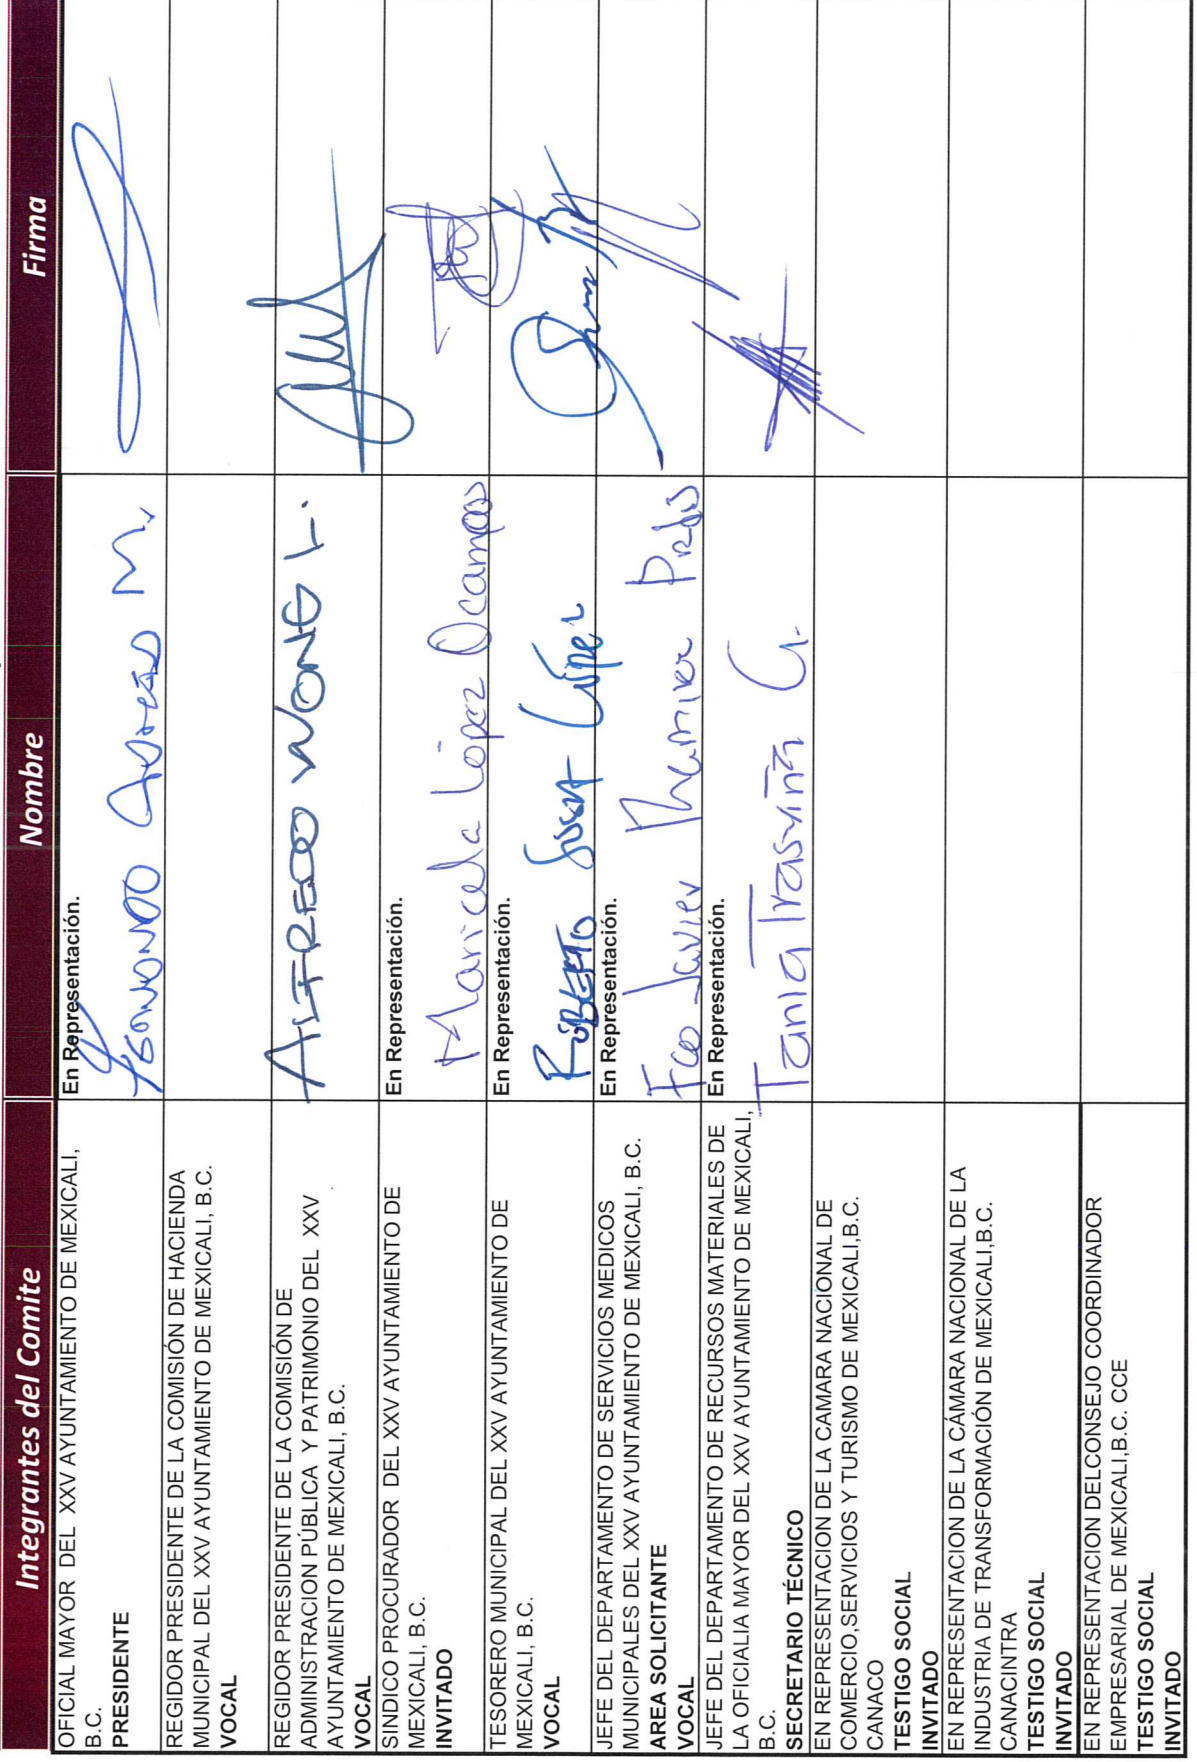 Integrantes del Comite
Nombre
Firma
OFICIAL MAYOR DEL XXV AYUNTAMIENTO DE MEXICALI,
B.C.
PRESIDENTE
En Representación.
M.
REGIDOR PRESIDENTE DE LA COMISIÓN DE HACIENDA
MUNICIPAL DEL XXV AYUNTAMIENTO DE MEXICALI, B.C.
VOCAL
REGIDOR PRESIDENTE DE LA COMISIÓN DE
ADMINISTRACION PÚBLICA Y PATRIMONIO DEL XXV
AYUNTAMIENTO DE MEXICALI, B.C.
VOCAL
ALFREDO WONG L.
SINDICO PROCURADOR DEL XXV AYUNTAMIENTO DE
MEXICALI, B.C.
INVITADO
En Representación.
Maricela López Ocampo
TESORERO MUNICIPAL DEL XXV AYUNTAMIENTO DE
MEXICALI, B.C.
VOCAL
En Representación.
ROBERTO López
JEFE DEL DEPARTAMENTO DE SERVICIOS MEDICOS
MUNICIPALES DEL XXV AYUNTAMIENTO DE MEXICALI, B.C.
AREA SOLICITANTE
VOCAL
En Representación.
Fco Javier
JEFE DEL DEPARTAMENTO DE RECURSOS MATERIALES DE
LA OFICIALIA MAYOR DEL XXV AYUNTAMIENTO DE MEXICALI,
B.C.
SECRETARIO TÉCNICO
En Representación.
Tania Trasviña G.
EN REPRESENTACION DE LA CAMARA NACIONAL DE
COMERCIO,SERVICIOS Y TURISMO DE MEXICALI,B.C.
CANACO
TESTIGO SOCIAL
INVITADO
EN REPRESENTACION DE LA CÁMARA NACIONAL DE LA
INDUSTRIA DE TRANSFORMACIÓN DE MEXICALI,B.C.
CANACINTRA
TESTIGO SOCIAL
INVITADO
EN REPRESENTACION DELCONSEJO COORDINADOR
EMPRESARIAL DE MEXICALI,B.C. CCE
TESTIGO SOCIAL
INVITADO